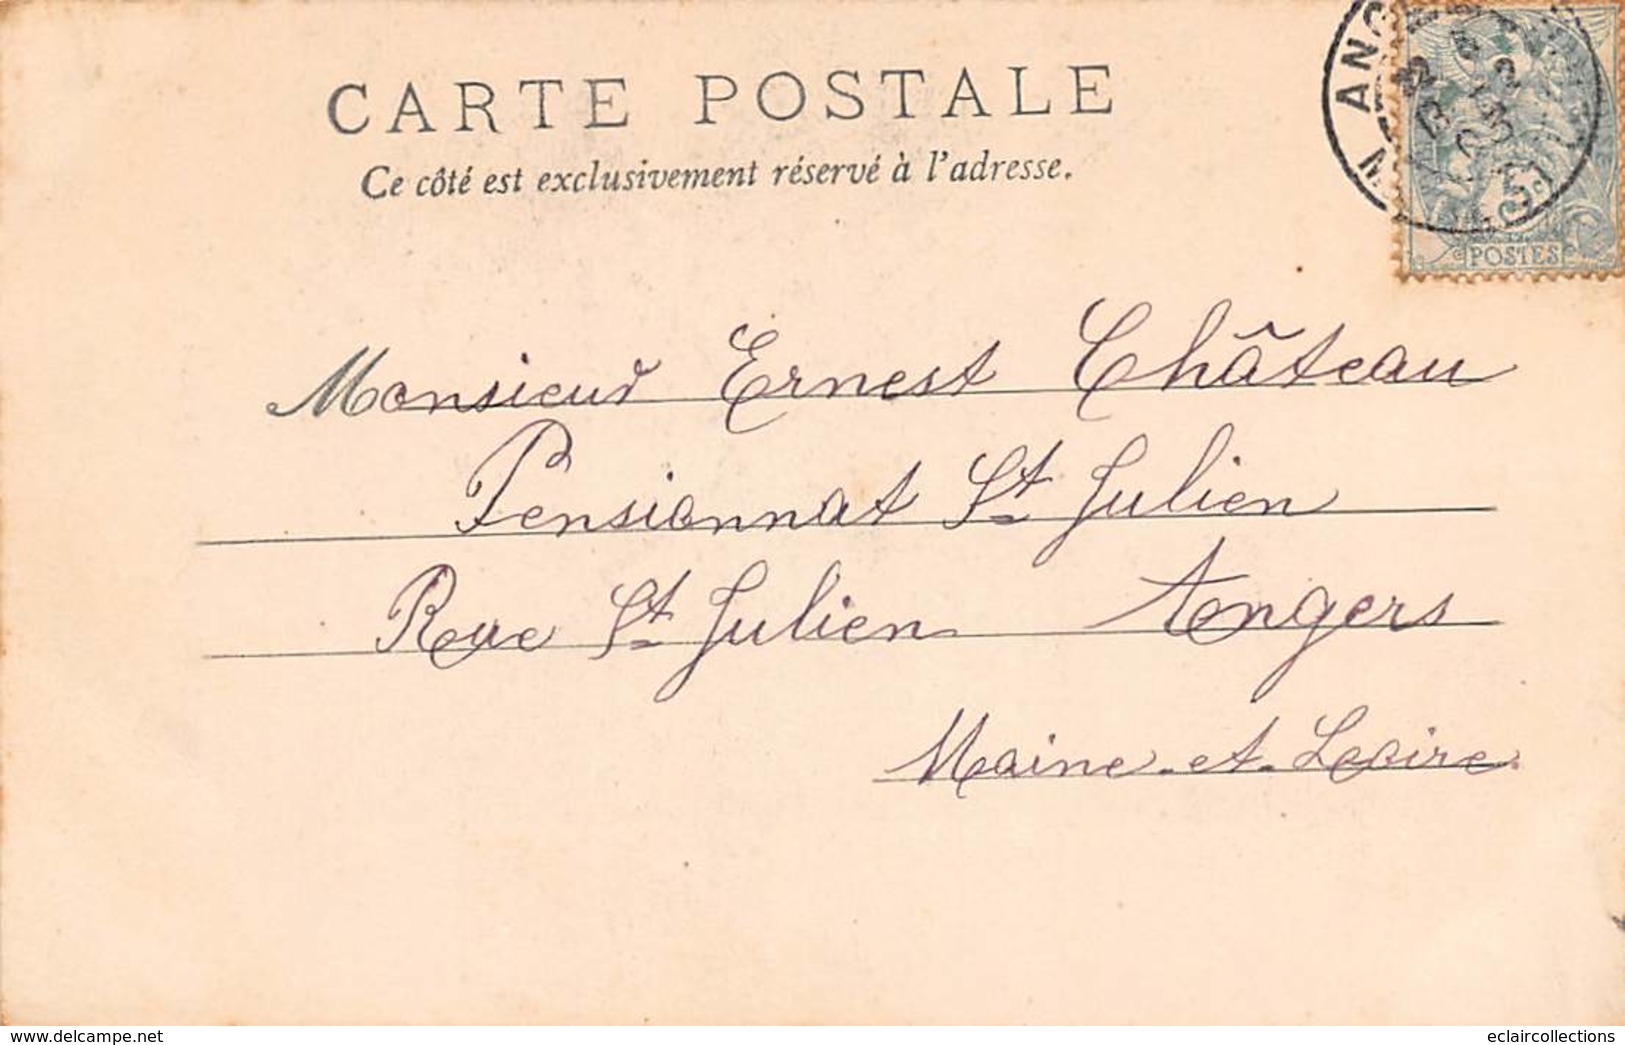 CARTE POSTALE
Ce côté est exclusivement réservé à l'adresse.
5c
POSTES
Monsieur Ernest Château
Pensionnat St Julien
Rue St Julien Angers
Maine-et-Loire.
www.delcampe.net
eclaircollections